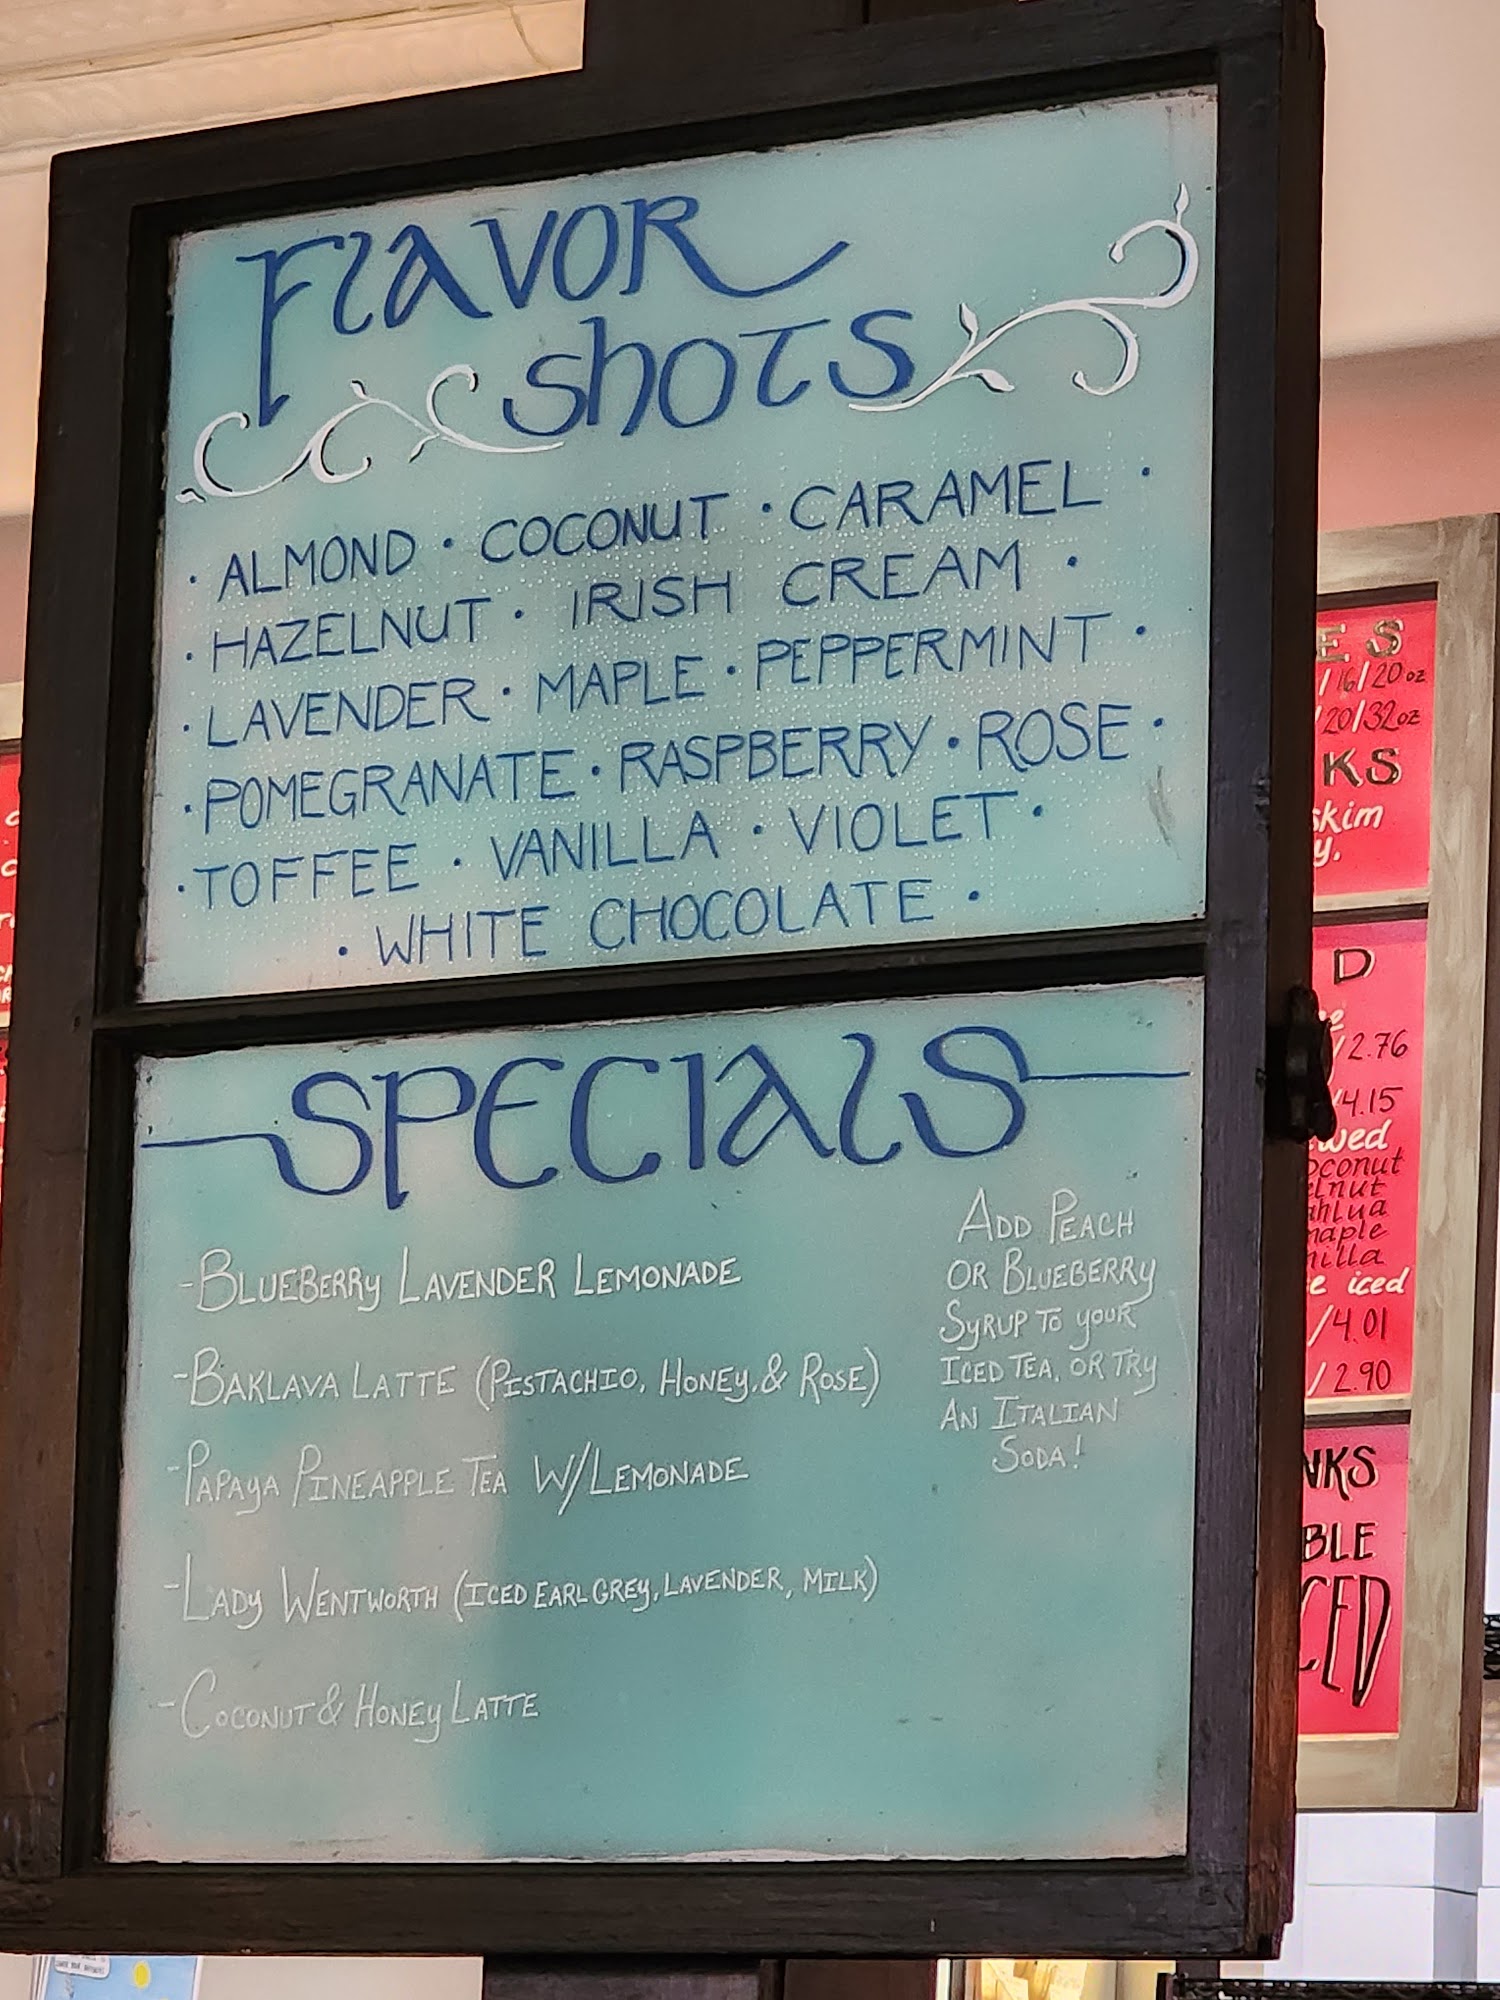 FLAVOR
SHOTS
· ALMOND · COCONUT · CARAMEL ·
· HAZELNUT · IRISH CREAM ·
· LAVENDER · MAPLE · PEPPERMINT ·
· POMEGRANATE · RASPBERRY · ROSE ·
· TOFFEE · VANILLA · VIOLET ·
· WHITE CHOCOLATE ·
SPECIALS
-BLUEBERRY LAVENDER LEMONADE
-BAKLAVA LATTE (PISTACHIO, HONEY, & ROSE)
-PAPAYA PINEAPPLE TEA W/LEMONADE
-LADY WENTWORTH (ICED EARL GREY, LAVENDER, MILK)
-COCONUT & HONEY LATTE
ADD PEACH
OR BLUEBERRY
SYRUP TO YOUR
ICED TEA, OR TRY
AN ITALIAN
SODA!
ES
/16/20oz
/20/32oz
KS
skim
y.
D
/2.76
/4.15
wed
oconut
elnut
ahlua
maple
nilla
e iced
/4.01
/2.90
NKS
BLE
CED